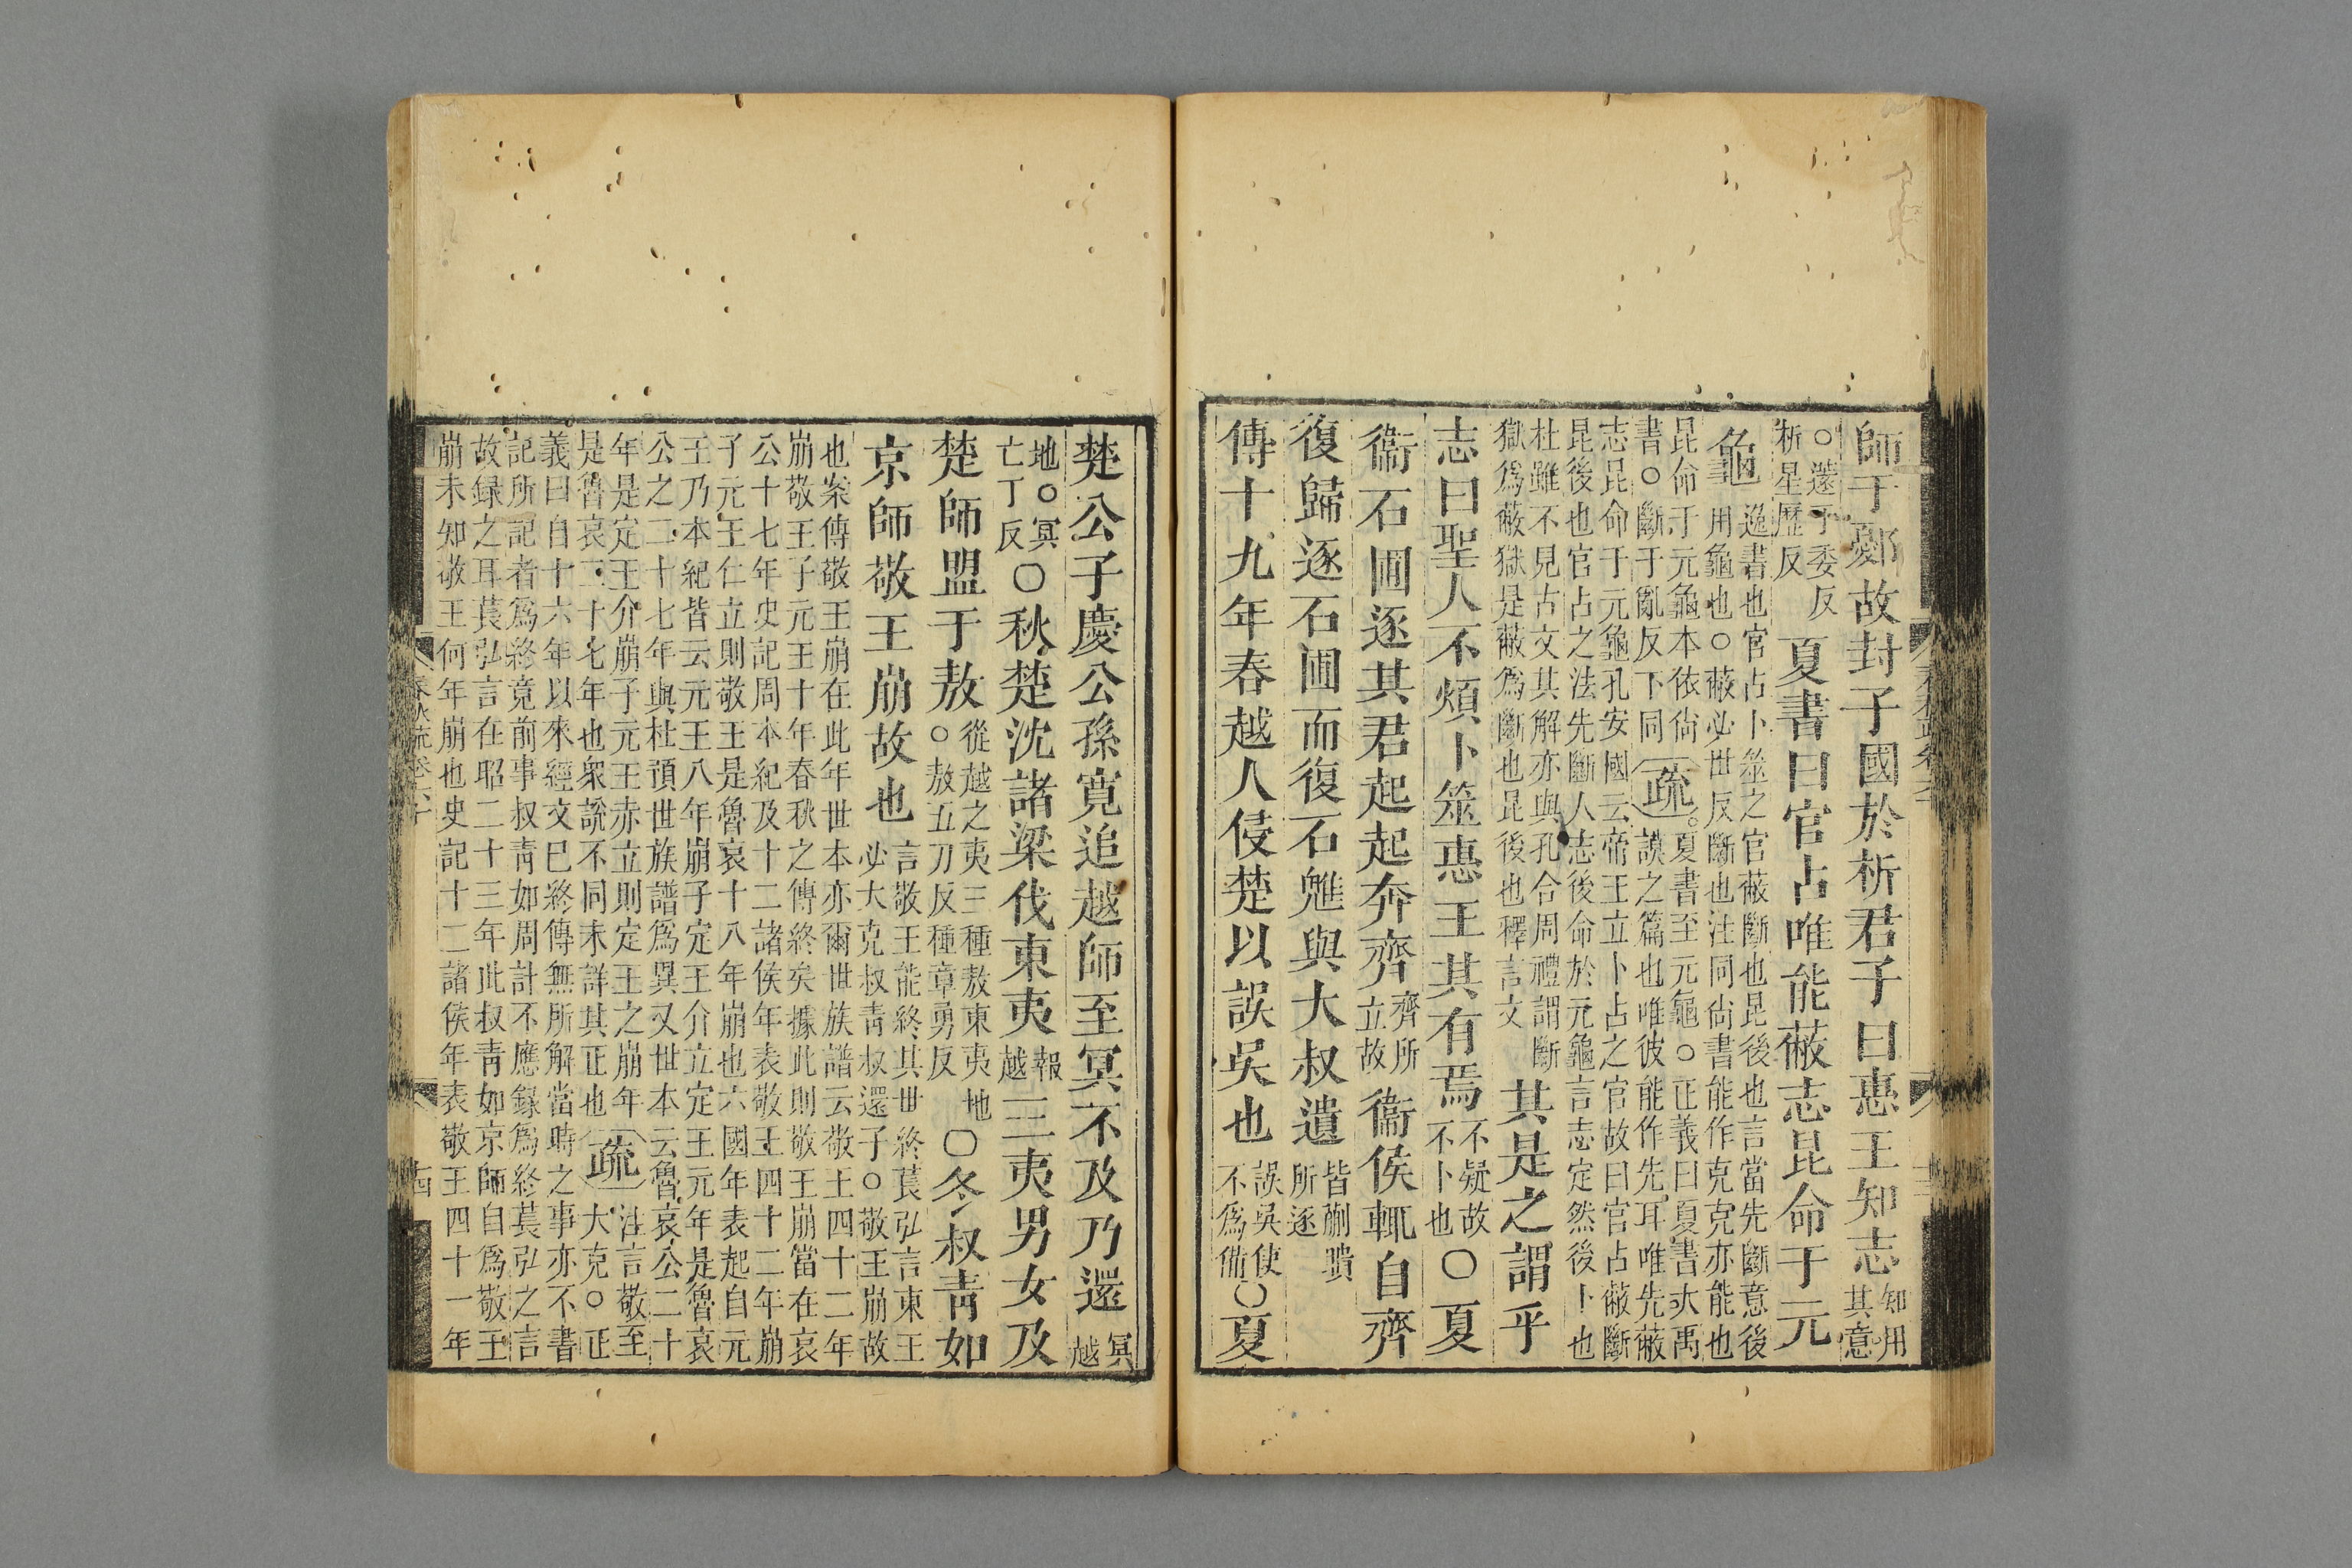 師于鄾故封子國於析君子曰惠王知志知用其意
○薳于委反析星歷反夏書曰官占唯能蔽志昆命于元
龜逸書也官占卜筮之官蔽斷也昆後也言當先斷意後
用龜也○蔽必世反斷也注同尙書能作克克亦能也
昆命于元龜本依尙書○斷于亂反下同疏夏書至元龜○正義曰夏書大禹謨之篇也唯彼能作先耳唯先蔽
志昆命于元龜孔安國云帝王立卜占之官故曰官占蔽斷
昆後也官占之法先斷人志後命於元龜言志定然後卜也
杜雖不見古文其解亦與孔合周禮謂斷
獄爲蔽獄是蔽爲斷也昆後也釋言文其是之謂乎
志曰聖人不煩卜筮惠王其有焉不疑故不卜也○夏
衞石圃逐其君起起奔齊齊所立故衞侯輒自齊
復歸逐石圃而復石魋與大叔遺皆蒯聵所逐
傳十九年春越人侵楚以誤吳也誤吳使不爲備○夏
楚公子慶公孫寬追越師至冥不及乃還冥越
地○冥亡丁反○秋楚沈諸梁伐東夷報越三夷男女及
楚師盟于敖從越之夷三種敖東夷地○敖五刀反種章勇反○冬叔靑如
京師敬王崩故也言敬王能終其世終萇弘言東王必大克叔靑叔還子○敬王崩故
也案傳敬王崩在此年世本亦爾世族譜云敬王四十二年
崩敬王子元王十年春秋之傳終矣據此則敬王崩當在哀
公十七年史記周本紀及十二諸侯年表敬王四十二年崩
子元王仁立則敬王是魯哀十八年崩也六國年表起自元
王乃本紀皆云元王八年崩子定王介立定王元年是魯哀
公之二十七年與杜預世族譜爲異又世本云魯哀公二十
年是定王介崩子元王赤立則定王之崩年
是魯哀二十七年也衆說不同未詳其正也疏注言敬至大克○正
義曰自十六年以來經文巳終傳無所解當時之事亦不書
記所記者爲終竟前事叔靑如周計不應錄爲終萇弘之言
故録之耳萇弘言在昭二十三年此叔靑如京師自爲敬王
崩未知敬王何年崩也史記十二諸侯年表敬王四十一年